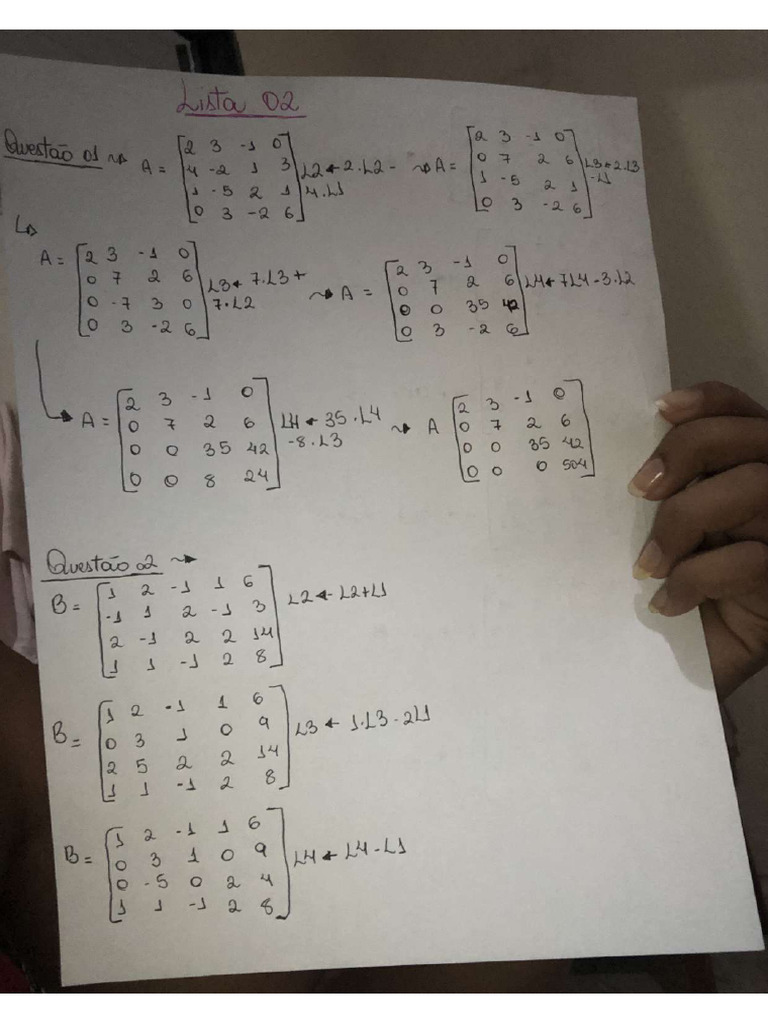 Lista 02
Questão 01 ⇝ A = [2 3 -1 0] ⇝ A = [2 3 -1 0]
[4 -2 1 3] L2 ← 2.L2 - [0 7 2 6] L3 ← 2.L3
[1 -5 2 1] 4.L1 [1 -5 2 1] -L1
[0 3 -2 6] [0 3 -2 6]
A = [2 3 -1 0] ⇝ A = [2 3 -1 0]
[0 7 2 6] L3 ← 7.L3 + [0 7 2 6] L4 ← 7L4 - 3.L2
[0 -7 3 0] 7.L2 [0 0 35 42]
[0 3 -2 6] [0 3 -2 6]
A = [2 3 -1 0] ⇝ A [2 3 -1 0]
[0 7 2 6] L4 ← 35.L4 [0 7 2 6]
[0 0 35 42] -8.L3 [0 0 35 42]
[0 0 8 24] [0 0 0 504]
Questão 02 ⇝
B = [1 2 -1 1 6]
[-1 1 2 -1 3] L2 ← L2+L1
[2 -1 2 2 14]
[1 1 -1 2 8]
B = [1 2 -1 1 6]
[0 3 1 0 9] L3 ← 1.L3 - 2L1
[2 5 2 2 14]
[1 1 -1 2 8]
B = [1 2 -1 1 6]
[0 3 1 0 9] L4 ← L4 - L1
[0 -5 0 2 4]
[1 1 -1 2 8]